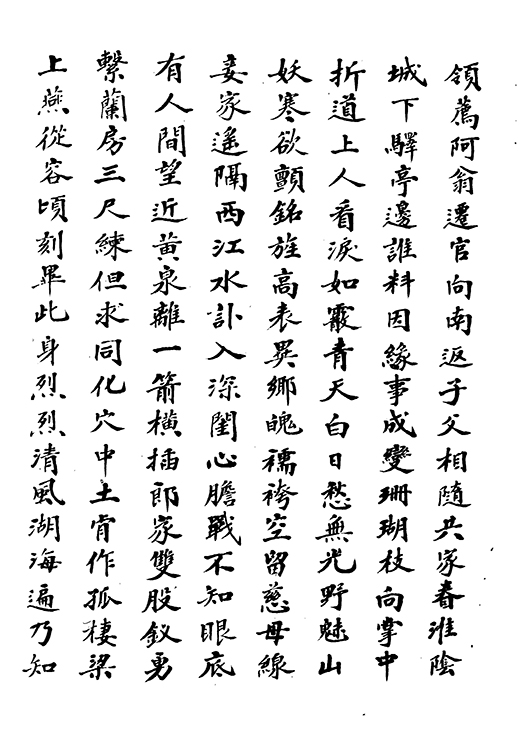 領薦阿翁遷官向南返子父相隨共家春淮陰
城下驛亭邊誰料因緣事成變珊瑚枝向掌中
折道上人看淚如霰青天白日愁無光野魅山
妖寒欲顫銘旌高表異鄉魄襦袴空留慈母線
妾家遙隔西江水訃入深閨心膽戰不知眼底
有人間望近黃泉離一箭橫插郎家雙股釵勇
繫蘭房三尺練但求同化穴中土肯作孤棲梁
上燕從容頃刻畢此身烈烈清風湖海遍乃知